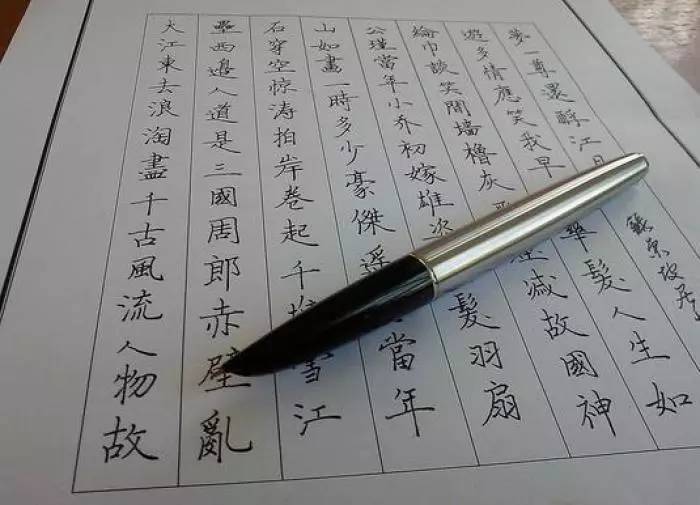 大江東去浪淘盡千古風流人物故
壘西邊人道是三國周郎赤壁亂
石穿空惊涛拍岸卷起千堆雪江
山如畫一時多少豪傑遥當年
公瑾當年小乔初嫁雄髮羽扇
綸巾談笑間墙櫓灰减故國神
遊多情應笑我早華髮人生如
夢一尊還酹江月